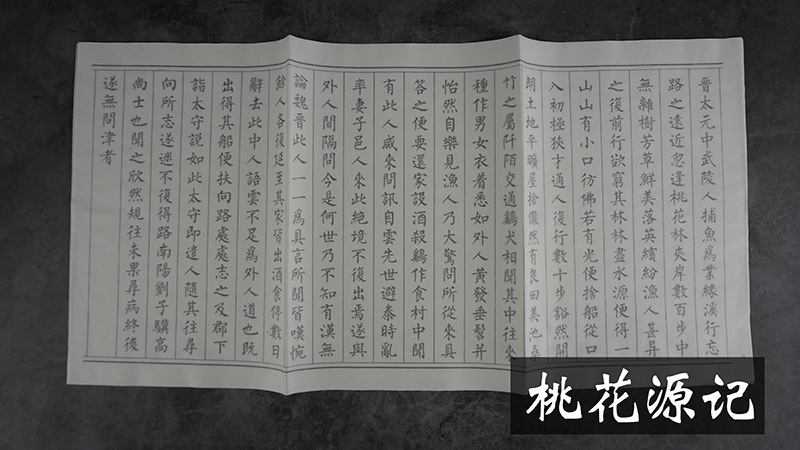 晉太元中武陵人捕魚爲業緣溪行忘
路之遠近忽逢桃花林夾岸數百步中
無雜樹芳草鮮美落英繽紛漁人甚异
之復前行欲窮其林林盡水源便得一
山山有小口彷彿若有光便捨船從口
入初極狹才通人復行數十步豁然開
朗土地平曠屋捨儼然有良田美池桑
竹之屬阡陌交通鷄犬相聞其中往來
種作男女衣着悉如外人黃發垂髫并
怡然自樂見漁人乃大驚問所從來具
答之便要還家設酒殺鷄作食村中聞
有此人咸來問訊自雲先世避秦時亂
率妻子邑人來此絕境不復出焉遂與
外人間隔問今是何世乃不知有漢無
論魏晉此人一一爲具言所聞皆嘆惋
餘人各復延至其家皆出酒食停數日
辭去此中人語雲不足爲外人道也既
出得其船便扶向路處處志之及郡下
詣太守説如此太守即遣人隨其往尋
向所志遂迷不復得路南陽劉子驥高
尚士也聞之欣然規往未果尋病終後
遂無問津者
桃花源记